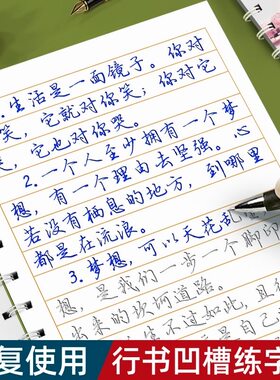 1.生活是一面镜子。你对
笑，它就对你笑；你对它
，它也对你哭。
2.一个人至少拥有一个梦
想，有一个理由去坚强。心
若没有栖息的地方，到哪里
都是在流浪。
3.梦想，可以天花乱
想，是我们一步一个脚印
出来的坎坷道路。
笑不过如此，且
是自己
复使用
行书凹槽练字